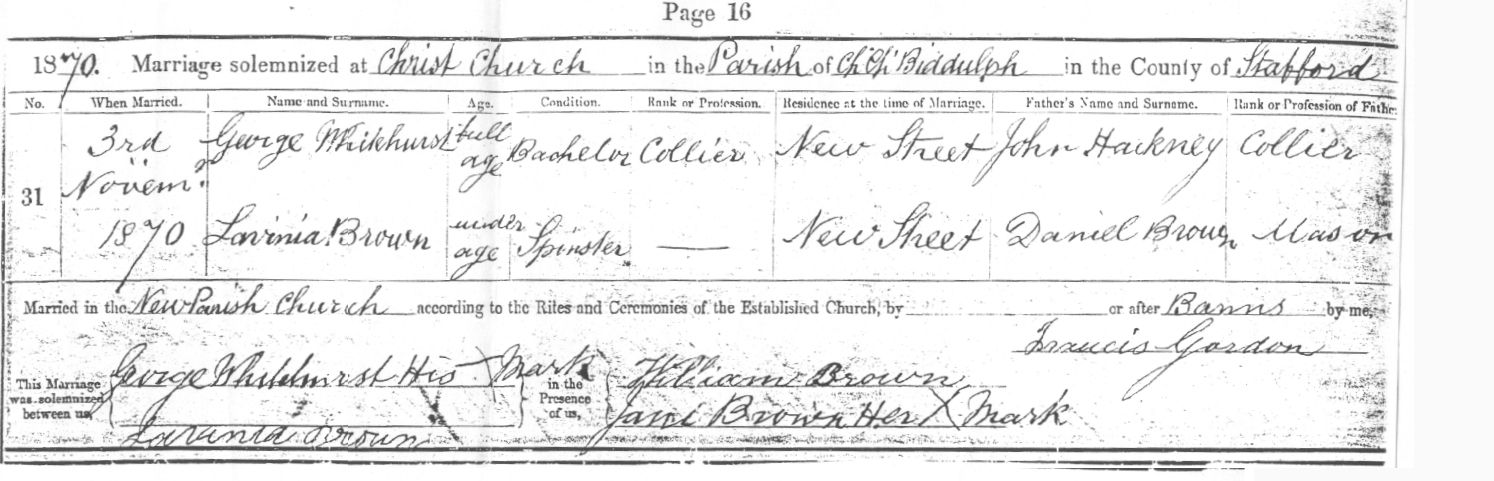 Page 16
1870. Marriage solemnized at Christ Church in the Parish of Ch Ch Biddulph in the County of Stafford
No. When Married. Name and Surname. Age. Condition. Rank or Profession. Residence at the time of Marriage. Father's Name and Surname. Rank or Profession of Fathe
31 3rd Novem. 1870 George Whikhurst full age Bachelor Collier New Street John Hackney Collier
Lavinia Brown under age Spinster — New Street Daniel Brown Mason
Married in the New Parish Church according to the Rites and Ceremonies of the Established Church, by or after Banns by me,
Francis Gordon
This Marriage was solemnized between us, George Whikhurst His X Mark in the Presence of us, William Brown
Lavinia Brown Jane Brown Her X Mark